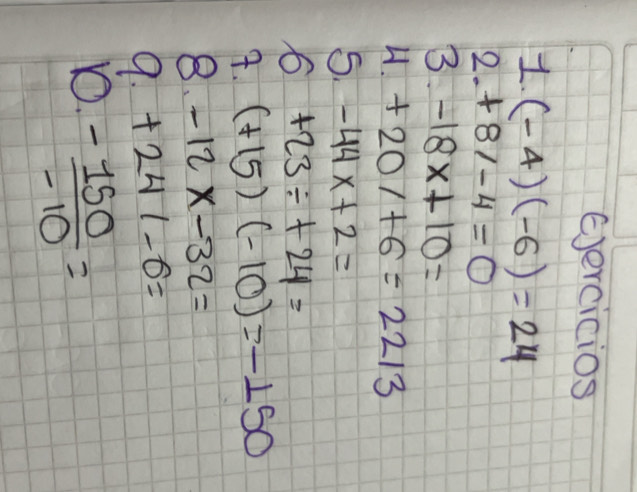 Ejercicios
1. (-4)(-6) = 24
2. +8/-4 = 0
3. -18x+10=
4. +20/+6 = 2213
5. -44x+2=
6 +23÷+24=
7. (+15)(-10)=-150
8. -12x-32=
9. +24/-6=
10. -150
-10 =